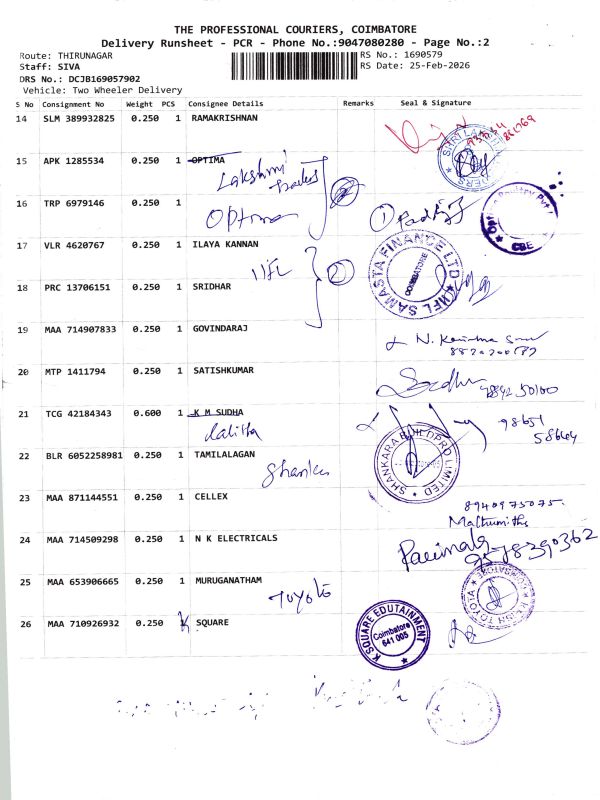 THE PROFESSIONAL COURIERS, COIMBATORE
Delivery Runsheet - PCR - Phone No.:9047080280 - Page No.:2
Route: THIRUNAGAR
RS No.: 1690579
Staff: SIVA
RS Date: 25-Feb-2026
DRS No.: DCJB169057902
Vehicle: Two Wheeler Delivery
S No Consignment No Weight PCS Consignee Details Remarks Seal & Signature
14 SLM 389932825 0.250 1 RAMAKRISHNAN
15 APK 1285534 0.250 1 OPTIMA
Lakshmi
16 TRP 6979146 0.250 1
Optima
1
CBE
17 VLR 4620767 0.250 1 ILAYA KANNAN
IIFL 2
IIFL SAMASTA FINANCE LTD
COIMBATORE
18 PRC 13706151 0.250 1 SRIDHAR
19 MAA 714907833 0.250 1 GOVINDARAJ
20 MTP 1411794 0.250 1 SATISHKUMAR
21 TCG 42184343 0.600 1 K M SUDHA
Lalitha
98651
58664
22 BLR 6052258981 0.250 1 TAMILALAGAN
SHANKARA BUILDPRO LIMITED
23 MAA 871144551 0.250 1 CELLEX
8940975075
24 MAA 714509298 0.250 1 N K ELECTRICALS
25 MAA 653906665 0.250 1 MURUGANATHAM
Toyota
26 MAA 710926932 0.250 K SQUARE
K SQUARE EDUTAINMENT
Coimbatore
641 005